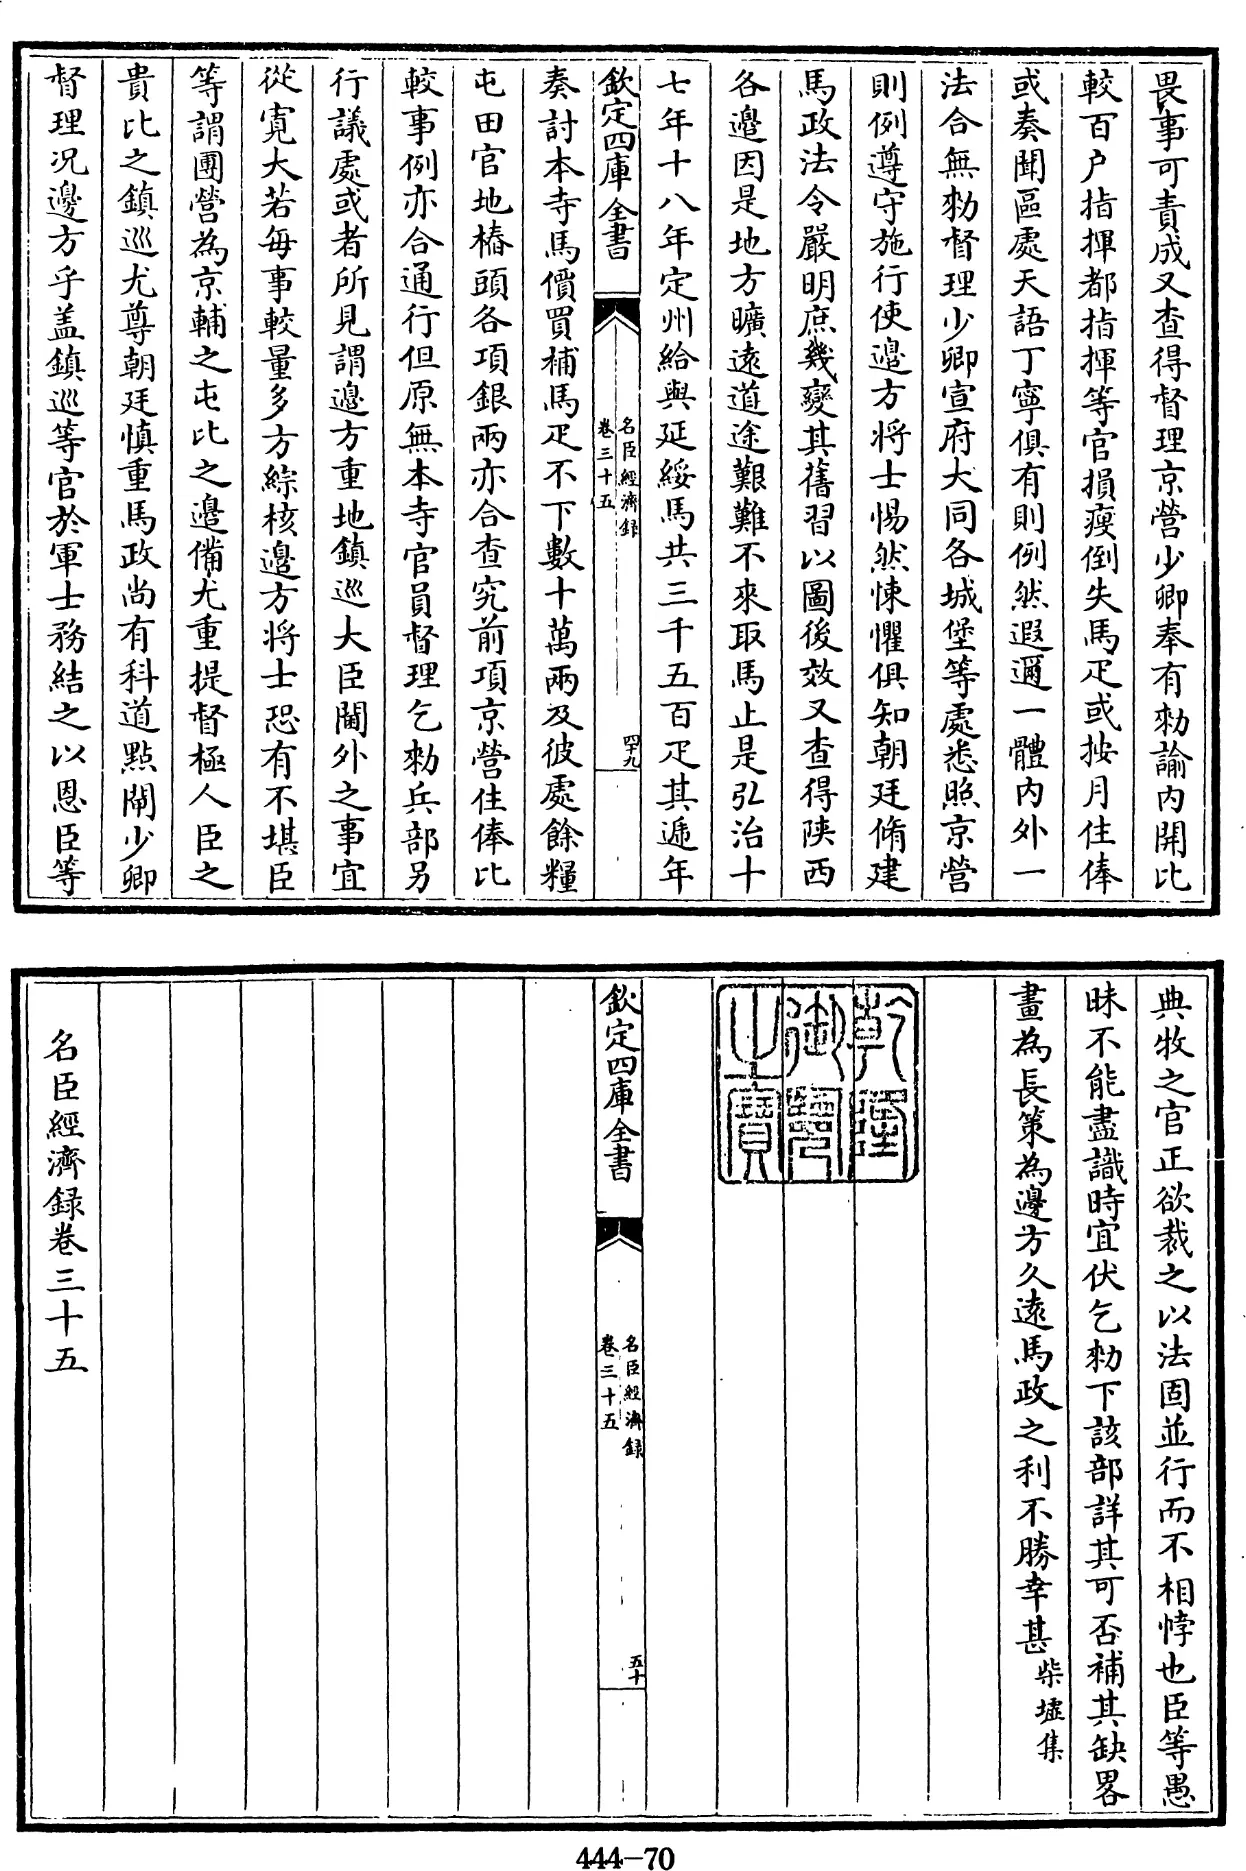 畏事可責成又查得督理京營少卿奉有勑諭内開比
較百户指揮都指揮等官損瘦倒失馬疋或按月住俸
或奏聞區處天語丁寧俱有則例然遐邇一體内外一
法合無勑督理少卿宣府大同各城堡等處悉照京營
則例遵守施行使邉方将士惕然悚懼俱知朝廷脩建
馬政法令嚴明庶幾變其舊習以圖後效又查得陕西
各邉因是地方曠逺道途艱難不來取馬止是弘治十
七年十八年定州給與延綏馬共三千五百疋其遞年
欽定四庫全書
名臣經濟録
卷三十五
四十九
奏討本寺馬價買補馬疋不下數十萬兩及彼處餘糧
屯田官地樁頭各項銀兩亦合查究前項京營住俸比
較事例亦合通行但原無本寺官員督理乞勑兵部另
行議處或者所見謂邉方重地鎮巡大臣閫外之事宜
從寛大若毎事較量多方綜核邉方将士恐有不堪臣
等謂團營為京輔之屯比之邉備尤重提督極人臣之
貴比之鎮巡尤尊朝廷慎重馬政尚有科道點閘少卿
督理况邉方乎盖鎮巡等官於軍士務結之以恩臣等
典牧之官正欲裁之以法固並行而不相悖也臣等愚
昧不能盡識時宜伏乞勑下該部詳其可否補其缺畧
畫為長策為邉方久逺馬政之利不勝幸甚 柴墟集
乾隆
御覽
之寶
欽定四庫全書
名臣經濟録
卷三十五
五十
名臣經濟録卷三十五
444-70